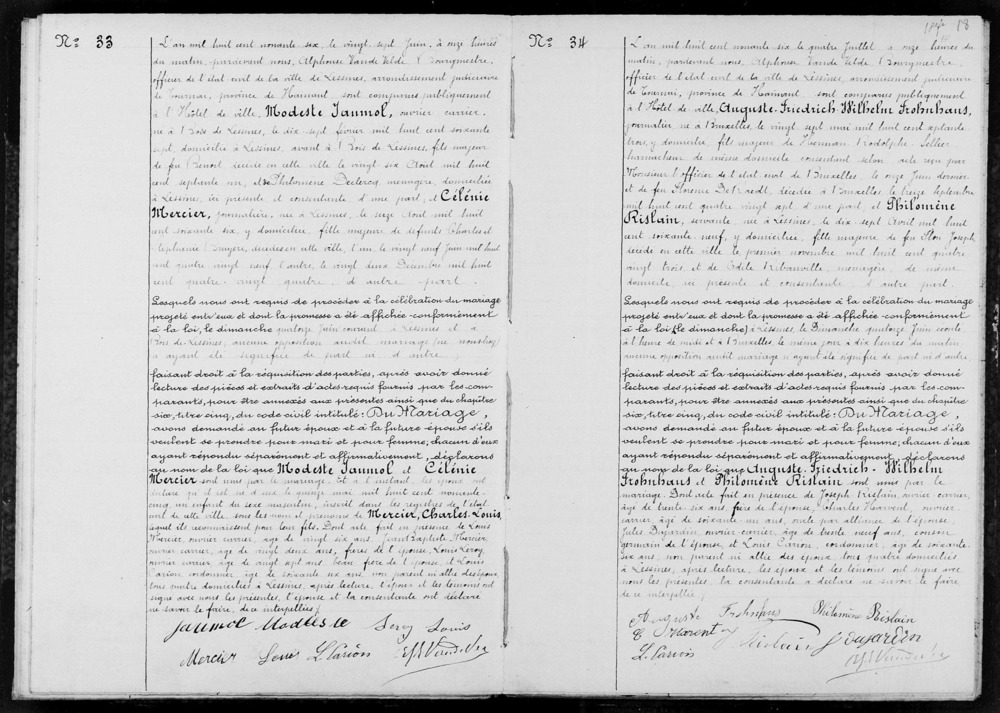 18
Nº 33
L'an mil huit cent nonante six, le vingt sept Juin, à onze heures
du matin, pardevant nous, Alphonse Vande Velde, Bourgmestre,
officier de l'état civil de la ville de Lessines, arrondissement judiciaire
de Tournai, province de Hainaut, sont comparus publiquement
à l'Hôtel de ville, Modeste Jaumol, ouvrier carrier,
né à Bois de Lessines, le dix-sept février mil huit cent soixante
sept, domicilié à Lessines, avant à Bois de Lessines, fils majeur
de feu Benoit, décédé en cette ville le vingt six Août mil huit
cent septante un, et de Philomène Declercq, ménagère, domiciliée
à Lessines, ici présente et consentante d'une part, et Célénie
Mercier, journalière, née à Lessines, le seize Août mil huit
cent soixante six, y domiciliée, fille majeure de défunts Charles et
Stéphanie, décédés en cette ville, l'un, le vingt neuf Juin mil huit
cent quatre vingt neuf, l'autre, le vingt deux Décembre mil huit
cent quatre vingt quatre, d'autre part.
Lesquels nous ont requis de procéder à la célébration du mariage
projeté entr'eux et dont la promesse a été affichée conformément
à la loi, le dimanche quatorze Juin courant à Lessines et à
Bois de Lessines, aucune opposition audit mariage
n'ayant été signifiée de part ni d'autre,
faisant droit à la réquisition des parties, après avoir donné
lecture des pièces et extraits d'actes requis fournis par les com-
parants, pour être annexés aux présentes ainsi que du chapitre
six, titre cinq, du code civil intitulé: Du Mariage,
avons demandé au futur époux et à la future épouse s'ils
veulent se prendre pour mari et pour femme; chacun d'eux
ayant répondu séparément et affirmativement, déclarons
au nom de la loi que Modeste Jaumol et Célénie
Mercier sont unis par le mariage. Et à l'instant, les époux ont
déclaré qu'il est né d'eux le quinze mai mil huit cent nonante-
cinq, un enfant du sexe masculin, inscrit dans les registres de l'état
civil de cette ville, sous les nom et prénoms de Mercier, Charles-Louis,
lequel ils reconnaissent pour leur fils. Dont acte fait en présence de Louis
Mercier, ouvrier carrier, âgé de vingt six ans, Jean Baptiste Mercier,
ouvrier carrier, âgé de vingt deux ans, frères de l'épouse, Louis Leroy,
ouvrier carrier, âgé de vingt sept ans, beau frère de l'épouse, et Louis
Carion, cordonnier, âgé de soixante six ans, non parent ni allié des époux,
tous quatre domiciliés à Lessines, après lecture, l'époux et les témoins ont
signé avec nous les présentes, l'épouse et la consentante ont déclaré
ne savoir le faire, de ce interpellées.
Jaumol Modeste Leroy Louis
Mercier Louis L. Carion
Nº 34
L'an mil huit cent nonante six le quatre Juillet à onze heures du
matin, pardevant nous, Alphonse Vande Velde, Bourgmestre,
officier de l'état civil de la ville de Lessines, arrondissement judiciaire
de Tournai, province de Hainaut, sont comparus publiquement
à l'Hôtel de ville, Auguste-Friedrich-Wilhelm Frohnhaus,
journalier, né à Bruxelles, le vingt sept mai mil huit cent septante
trois, y domicilié, fils majeur de Herman Rodolphe, Sellier-
harnacheur de même domicile consentant selon acte reçu par
Monsieur l'officier de l'état civil de Bruxelles le onze Juin dernier
et de feu, décédée à Bruxelles le treize Septembre
mil huit cent quatre vingt sept d'une part, et Philomène
Rislain, servante, née à Lessines, le dix sept Avril mil huit
cent soixante neuf, y domiciliée, fille majeure de feu Joseph,
décédé en cette ville le premier novembre mil huit cent quatre
vingt trois, et de Odile Ribauville, ménagère, de même
domicile, ici présente et consentante d'autre part.
Lesquels nous ont requis de procéder à la célébration du mariage
projeté entr'eux et dont la promesse a été affichée conformément
à la loi (le dimanche) à Lessines, le Dimanche quatorze Juin écoulé
à l'heure de midi et à Bruxelles, le même jour à dix heures du matin,
aucune opposition audit mariage n'ayant été signifiée de part ni d'autre,
faisant droit à la réquisition des parties, après avoir donné
lecture des pièces et extraits d'actes requis fournis par les com-
parants, pour être annexés aux présentes ainsi que du chapitre
six, titre cinq, du code civil intitulé: Du Mariage,
avons demandé au futur époux et à la future épouse s'ils
veulent se prendre pour mari et pour femme; chacun d'eux
ayant répondu séparément et affirmativement, déclarons
au nom de la loi que Auguste-Friedrich-Wilhelm
Frohnhaus et Philomène Rislain sont unis par le
mariage. Dont acte fait en présence de Joseph Rislain, ouvrier carrier,
âgé de trente six ans, frère de l'épouse, Charles Horvent, ouvrier
carrier, âgé de soixante un ans, oncle par alliance de l'épouse,
Jules Dujardin, ouvrier carrier, âgé de trente neuf ans, cousin
germain de l'épouse, et Louis Carion, cordonnier, âgé de soixante
six ans, non parent ni allié des époux, tous quatre domiciliés
à Lessines, après lecture, les époux et les témoins ont signé avec
nous les présentes, la consentante a déclaré ne savoir le faire,
de ce interpellée.
Auguste Frohnhaus Philomène Rislain
C Horent J Rislain J Dujardin
L. Carion